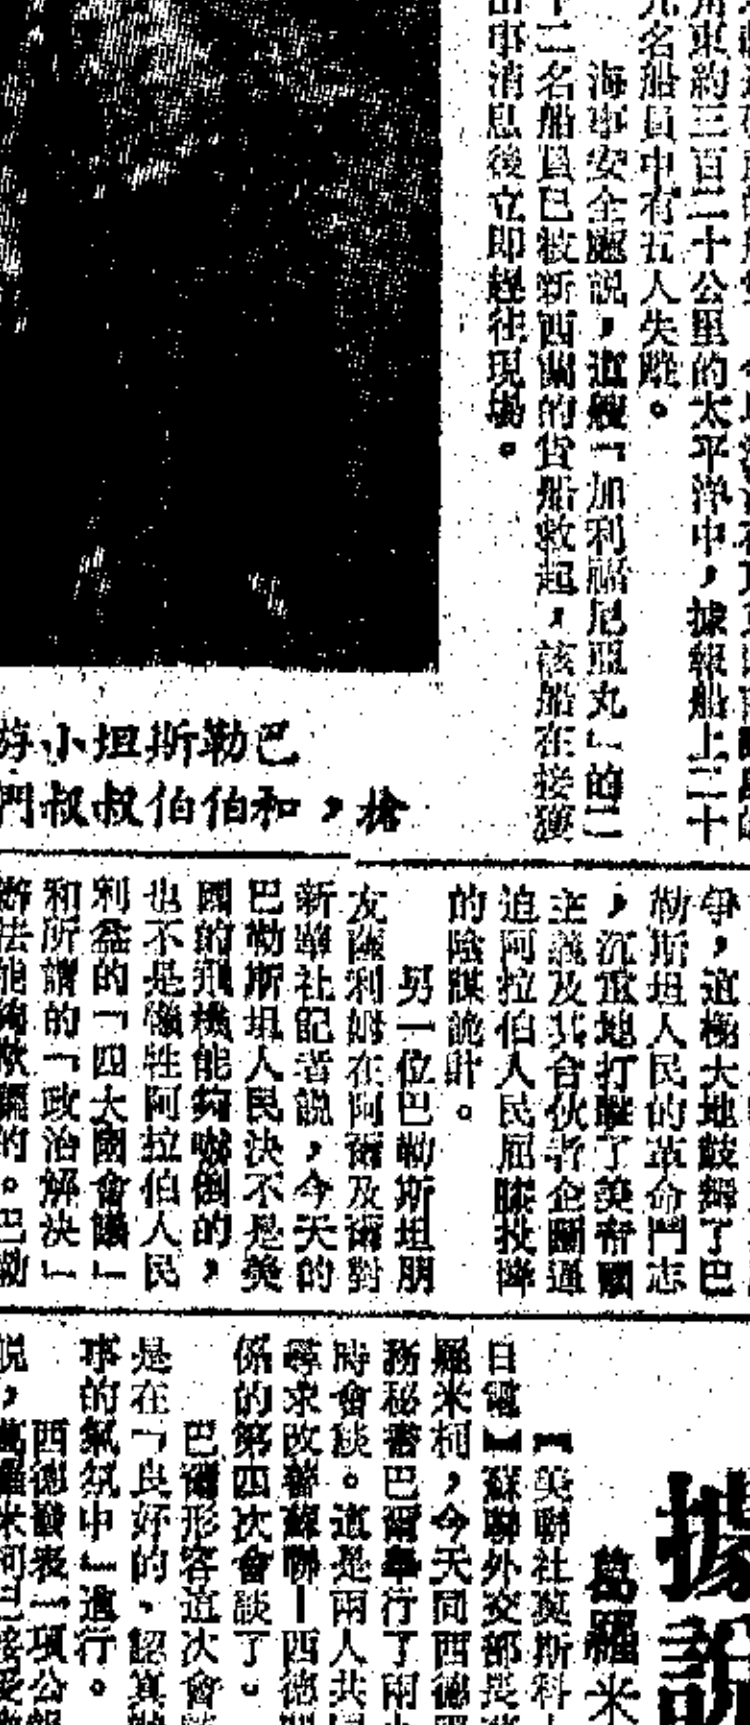 角東約三百二十公里的太平洋中，據報船上二十
九名船員中有五人失蹤。
海事安全廳説，這艘「加利福尼亞丸」的二
十二名船員已被新西蘭的貨船救起，該船在接獲
出事消息後立即趕往現場。
巴勒斯坦小游
槍，和伯伯叔叔們
爭，這極大地鼓舞了巴
勒斯坦人民的革命鬥志
，沉重地打擊了美帝國
主義及其合伙者企圖逼
迫阿拉伯人民屈膝投降
的陰謀詭計。
另一位巴勒斯坦朋
友薩利姆在阿爾及爾對
新華社記者説，今天的
巴勒斯坦人民決不是美
國的飛機能夠嚇倒的，
也不是犧牲阿拉伯人民
利益的「四大國會議」
和所謂的「政治解決」
辦法能夠欺騙的。巴勒
據説
葛羅米
【美聯社莫斯科
日電】蘇聯外交部長
羅米柯，今天同西德
務秘書巴爾舉行了兩
時會談。這是兩人共同
尋求改善蘇聯—西德關
係的第四次會談了。
巴爾形容這次會
是在「良好的、認真
事的氣氛中」進行。
西德發表一項公報
説，葛羅米柯已接受